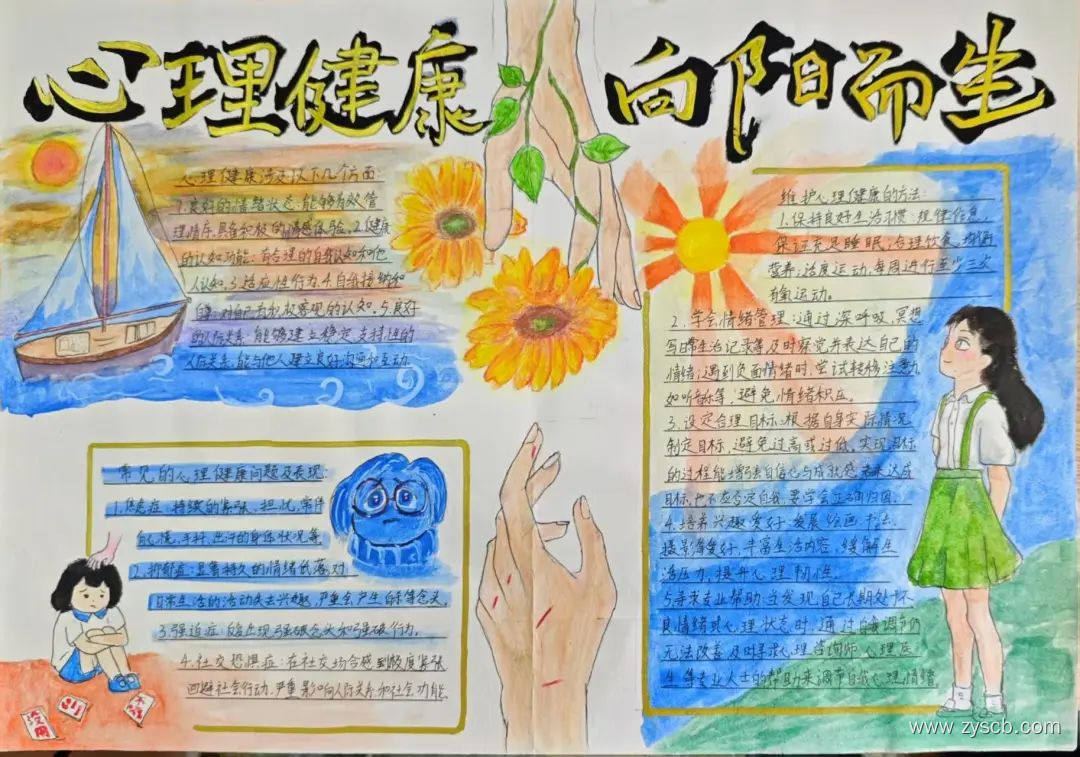 心理健康 向阳而生
心理健康涉及以下几个方面:
1.良好的情绪状态:能够有效管
理情绪,具备积极的情感体验。2.健康
的认知功能:有合理的自我认知和他
人认知。3.适应性行为。4.自我接纳和
自尊:对自己有积极客观的认知。5.良好
的人际关系:能够建立稳定、支持性的
人际关系,能与他人建立良好沟通和互动。
常见的心理健康问题及表现:
1.焦虑症:持续的紧张、担忧,常伴
心慌、手抖、出汗的身体状况等。
2.抑郁症:显著持久的情绪低落,对
日常生活的活动失去兴趣,严重会产生自杀等念头。
3.强迫症:反复出现强迫念头和强迫行为。
4.社交恐惧症:在社交场合感到极度紧张
回避社会行动,严重影响人际关系和社会功能。
没用
维护心理健康的方法:
1.保持良好生活习惯:规律作息,
保证充足睡眠;合理饮食,均衡
营养;适度运动,每周进行至少三次
有氧运动。
2.学会情绪管理:通过深呼吸,冥想
写日常生活记录等及时察觉并表达自己的
情绪;遇到负面情绪时,尝试转移注意力
如听音乐等,避免情绪积压。
3.设定合理目标:根据自身实际情况
制定目标,避免过高或过低,实现目标
的过程能增强自信心与成就感,若未达成
目标,也不应否定自我,要学会正确归因。
4.培养兴趣爱好:发展绘画、书法、
摄影等爱好,丰富生活内容,缓解生
活压力,提升心理韧性。
5.寻求专业帮助:当发现自己长期处于不
良情绪或心理状态时,通过自我调节仍
无法改善,及时寻求心理咨询师、心理医
生等专业人士的帮助来调节自我心理情绪。
www.zyscb.com